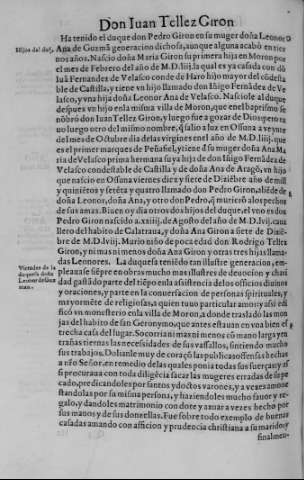 Don Iuan Tellez Giron
Ha tenido el duque don Pedro Giron en su muger doña Leonor
Hijos del duq̃. Ana de Guzmã generacion dichosa, aunque alguna acabò en tier
nos años. Nascio doña Maria Giron su primera hija en Moron por
el mes de Febrero del año de M.D.liij. la qual es ya casada con dõ
Iuã Fernandez de Velasco conde de Haro hijo mayor del cõdesta
ble de Castilla, y tiene vn hijo llamado don Iñigo Fernãdez de Ve
lasco, y vna hija doña Leonor Ana de Velasco. Nasciole al duque
despues vn hijo en la misma villa de Moron, que enel baptismo se
nõbrò don Iuan Tellez Giron, y luego fue a gozar de Dios: pero tu
uo luego otro del mismo nombre, q̃ salio a luz en Ossuna a veynte
del mes de Octubre dia de las virgines en el año de M.D.liiij. que
es el primer marques de Peñafiel, y tiene ð su muger doña Ana Ma
ria de Velasco prima hermana suya hija de don Iñigo Fernãdez de
Velasco condestable de Castilla y de doña Ana de Aragõ, vn hijo
que nascio en Ossuna viernes diez y siete de Diziẽbre año de mill
y quiniẽtos y setẽta y quatro llamado don Pedro Giron, aliẽde de
doña Leonor, doña Ana, y otro don Pedro, q̃ muriero a los pechos
de sus amas. Bien oy dia otros dos hijos del duque, el vno es dos
Pedro Giron nascido a .xxiiij. de Agosto del año de M.D.lvij. caua
llero del habito de Calatraua, y doña Ana Giron a siete de Diziẽ
bre de M.D.lviij. Mario niño de poca edad don Rodrigo Tellez
Giron, y ni mas ni menos doña Ana Giron y otras tres hijas llama
das Leonores. La duquesa teniẽdo tan illustre generacion, em-
Virtudes de la duquesa doña Leonor de Guz man. pleaua se siẽpre en obras mucho mas illustres de deuocion y chari
dad gastãdo parte del tiẽpo en la asistencia de los officios diuinos
y oraciones, y parte en la conuersacion de personas spirituales, y
mayormẽte de religiosas, a quien tuuo particular amor y assi edi
ficò vn monesterio en la villa de Moron, a donde traslado las mon
jas del habito de san Geronymo que antes estauan en vna bien es
trecha casa del lugar. Socorria ni mas ni menos cõ mano larga y en
trañas tiernas las necessidades de sus vassallos, sintiendo mucho
sus trabajos. Dolianle muy de coraçõ las publicas offensas hechas a
nr̃o Señor, en remedio de las quales ponia todas sus fuerças y assi
procuraua con toda diligẽcia sacar las mugeres erradas de su pe
cado, predicandoles por santos y doctos varones, y a vezes amone
standolas por su misma persona, y haziendoles mucho fauor y re-
galo, y dandoles matrimonio con dote y axuar a vezes hecho por
sus manos y de sus donzellas. Fue sobre todo exemplo de buenas
casadas amando con afficion y prudencia christiana a su marido, y
finalmen-